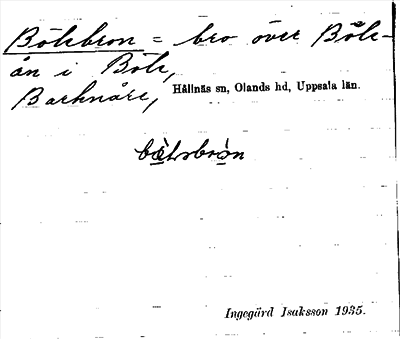 Bölsbron = bro över Böls-
ån i Böle,
Barknåre, Hållnäs sn, Olands hd, Uppsala län.
bö̀lsbròn
Ingegärd Isaksson 1935.